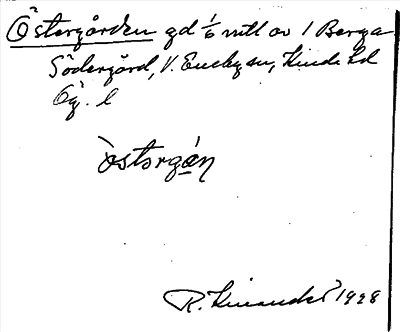 Östergården gd 1/6 mtl av 1 Berga
Södergård, V. Eneby sn, Kinda hd
Ög. l
òstərgán
R. Kinander 1928